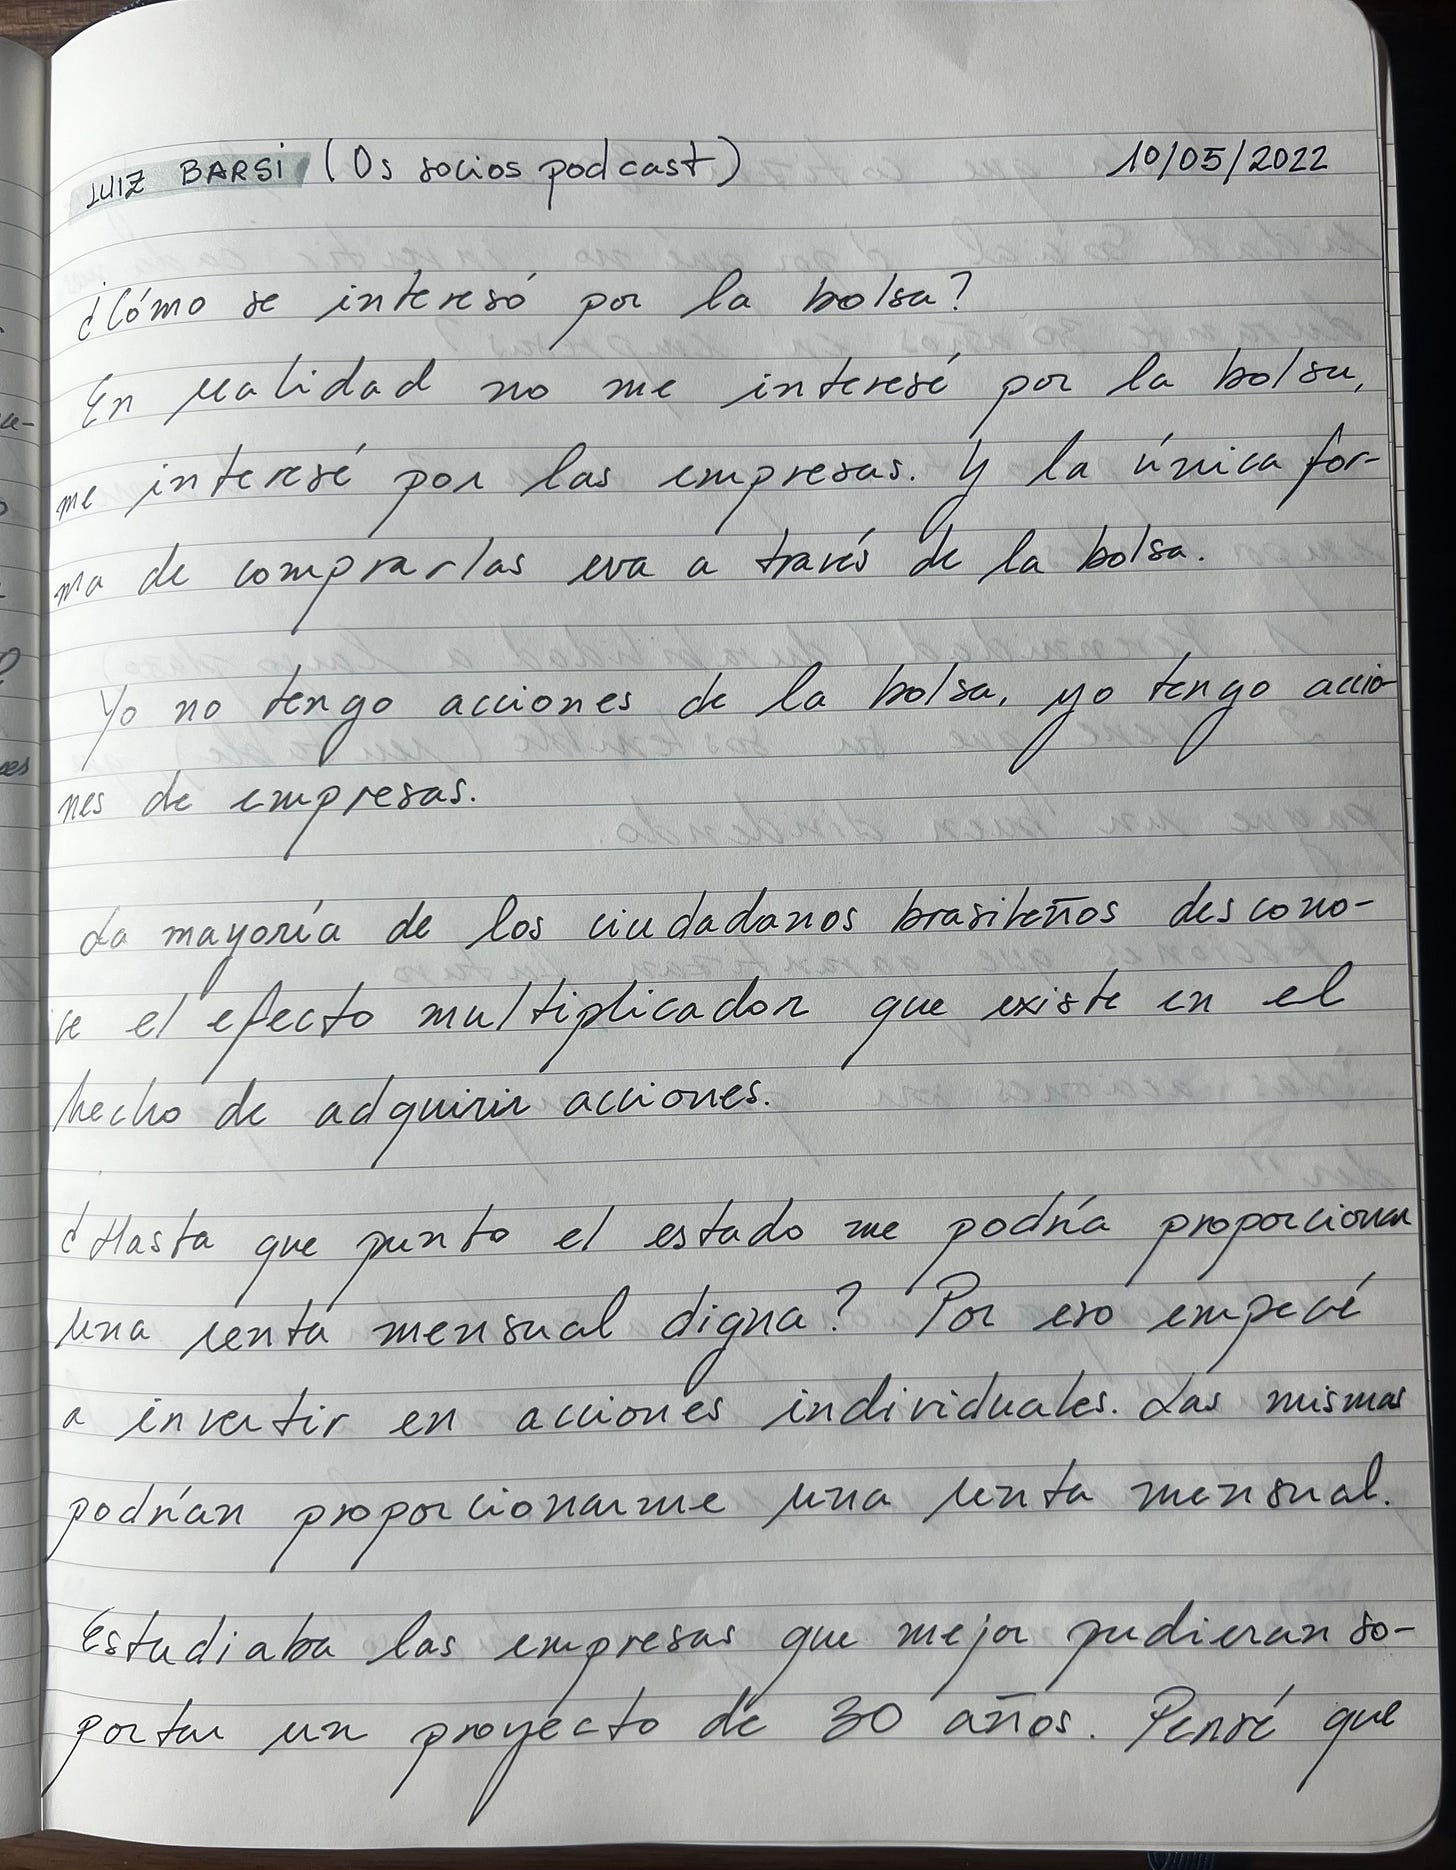 LUIZ BARSI (Os socios podcast) 10/05/2022
¿Cómo se interesó por la bolsa?
En realidad no me interesé por la bolsa,
me interesé por las empresas. Y la única for-
ma de comprarlas era a través de la bolsa.
Yo no tengo acciones de la bolsa, yo tengo accio-
nes de empresas.
La mayoría de los ciudadanos brasileños descono-
ce el efecto multiplicador que existe en el
hecho de adquirir acciones.
¿Hasta que punto el estado me podría proporcionar
una renta mensual digna? Por eso empecé
a invertir en acciones individuales. Las mismas
podrían proporcionarme una renta mensual.
Estudiaba las empresas que mejor pudieran so-
portar un proyecto de 30 años. Pensé que